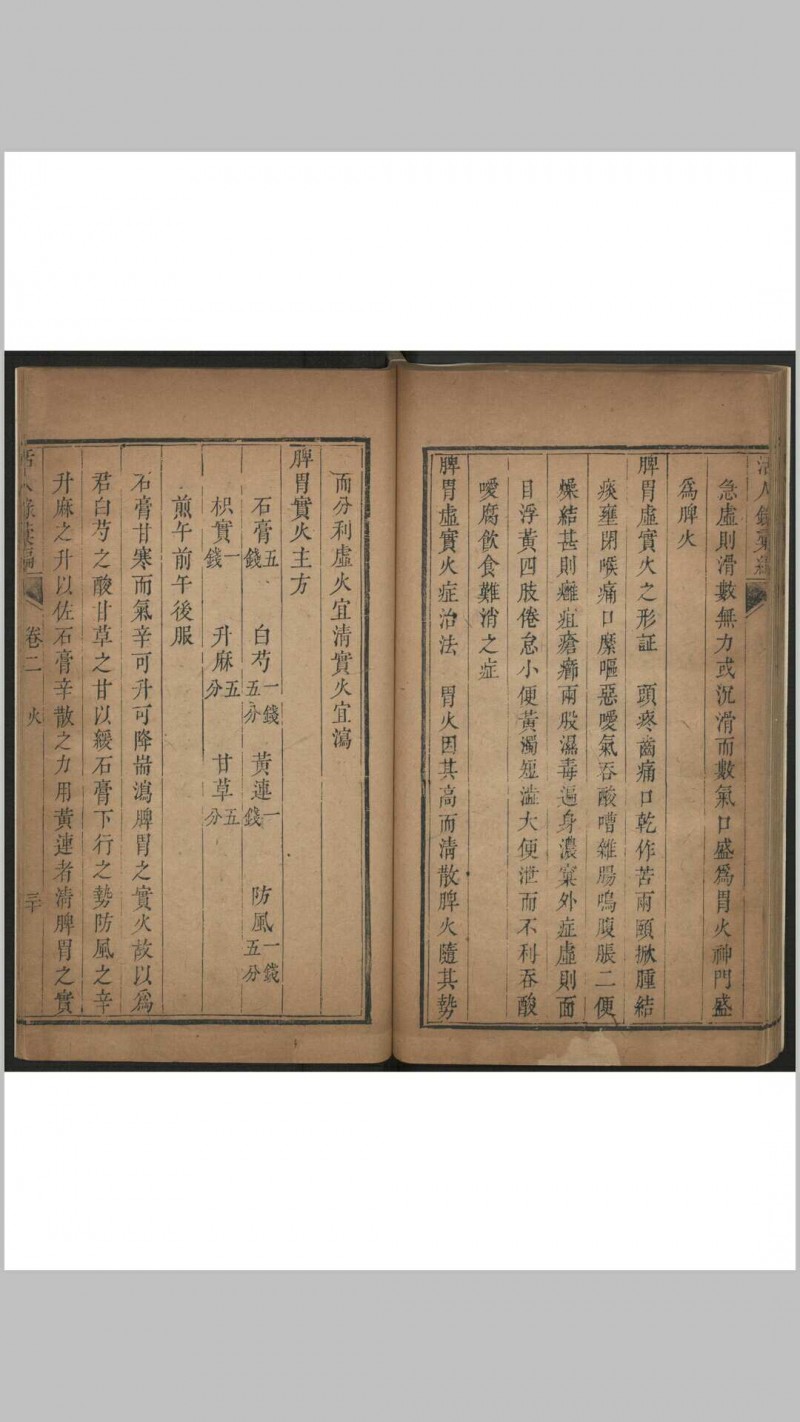 活人錄彙編
急虛則滑數無力或沉滑而數氣口盛爲胃火神門盛
爲脾火
脾胃虛實火之形証 頭疼齒痛口乾作苦兩頤掀腫結
痰壅閉喉痛口糜嘔惡噯氣吞酸嘈雜腸鳴腹脹二便
燥結甚則癰疽瘡癤兩股濕毒遍身濃窠外症虛則面
目浮黃四肢倦怠小便黃濁短澁大便泄而不利吞酸
噯腐飲食難消之症
脾胃虛實火症治法 胃火因其高而淸散脾火隨其勢
而分利虛火宜清實火宜瀉
脾胃實火主方
石膏五錢 白芍一錢五分 黃連一錢 防風一錢五分
枳實一錢 升麻五分 甘草五分
煎午前午後服
石膏甘寒而氣辛可升可降耑瀉脾胃之實火故以爲
君白芍之酸甘草之甘以緩石膏下行之勢防風之辛
升麻之升以佐石膏辛散之力用黃連者清脾胃之實
活人錄彙編 卷二 火 三十